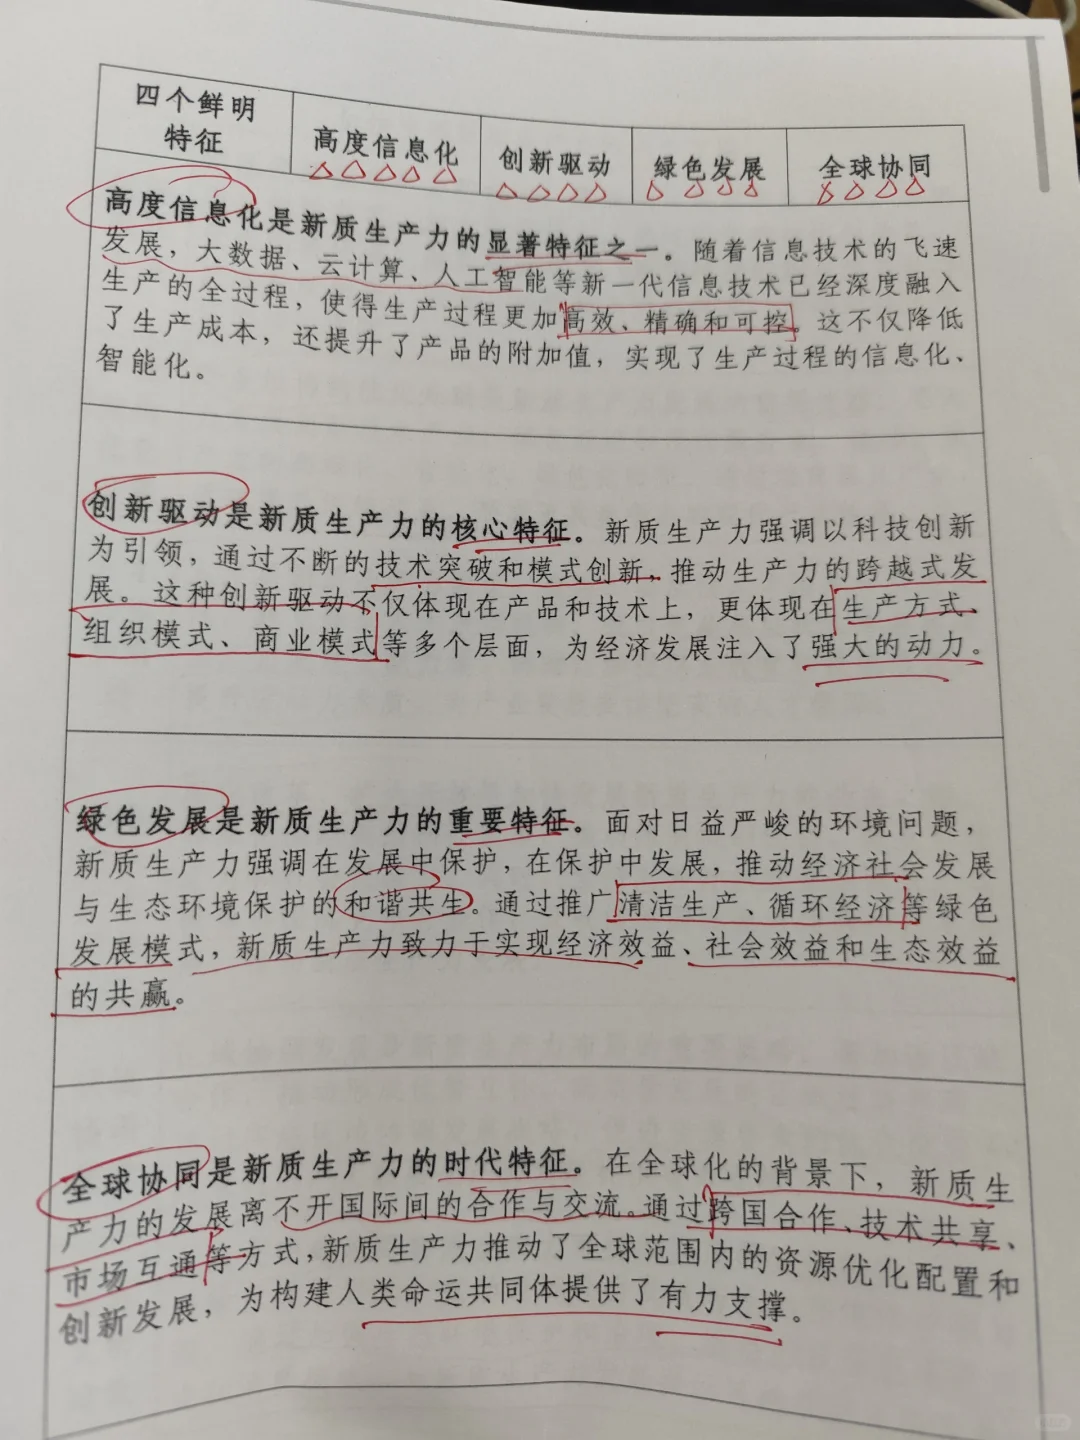 四个鲜明
特征
高度信息化
创新驱动
绿色发展
全球协同
高度信息化是新质生产力的显著特征之一。随着信息技术的飞速
发展，大数据、云计算、人工智能等新一代信息技术已经深度融入
生产的全过程，使得生产过程更加高效、精确和可控。这不仅降低
了生产成本，还提升了产品的附加值，实现了生产过程的信息化、
智能化。
创新驱动是新质生产力的核心特征。新质生产力强调以科技创新
为引领，通过不断的技术突破和模式创新，推动生产力的跨越式发
展。这种创新驱动不仅体现在产品和技术上，更体现在生产方式、
组织模式、商业模式等多个层面，为经济发展注入了强大的动力。
绿色发展是新质生产力的重要特征。面对日益严峻的环境问题，
新质生产力强调在发展中保护，在保护中发展，推动经济社会发展
与生态环境保护的和谐共生。通过推广清洁生产、循环经济等绿色
发展模式，新质生产力致力于实现经济效益、社会效益和生态效益
的共赢。
全球协同是新质生产力的时代特征。在全球化的背景下，新质生
产力的发展离不开国际间的合作与交流。通过跨国合作、技术共享、
市场互通等方式，新质生产力推动了全球范围内的资源优化配置和
创新发展，为构建人类命运共同体提供了有力支撑。